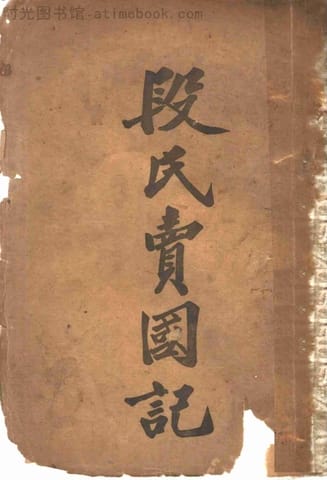 时光图书馆-atimebook.com
段氏賣國記